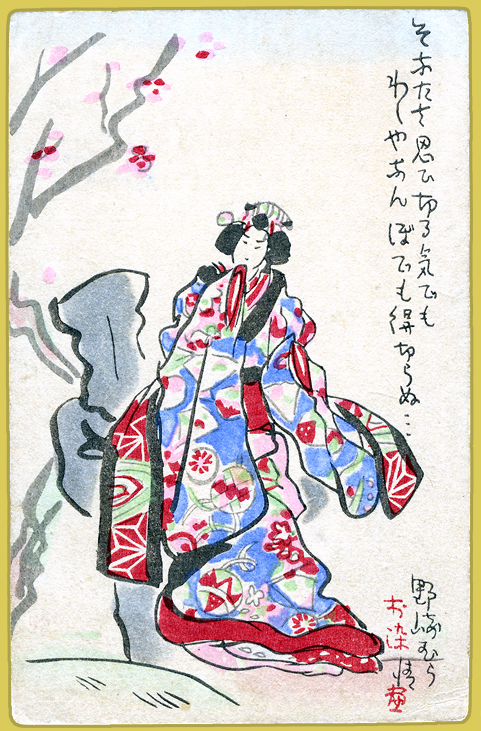 そなたは思ひ切る気でも
わしやなんぼでも得切らぬ…
野崎むら
お染